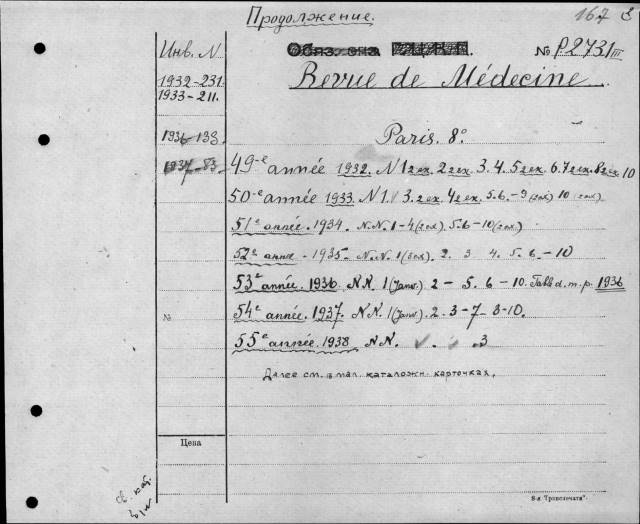 Продолжение.
167
Инв. N
№ P.2731 III
1932-231.
1933-211.
Revue de Médecine
1936-133.
Paris. 8º.
1937-83.
49-e année 1932. N 1 2 эк. 2 2 эк. 3. 4. 5 2 эк. 6. 7 2 эк. 8 2 эк. 10
50-e année 1933. N 1. 3. 2 эк. 4 2 эк. 5. 6. - 9 (2 эк) 10 (2 эк)
51e année. 1934. N.N. 1-4 (2 эк). 5. 6-10 (2 эк)
52e année - 1935. N.N. 1 (2 эк). 2. 3 4. 5. 6. - 10
53e année. 1936. N.N. 1 (Janv.) 2 - 5. 6 - 10. Table d. m. p. 1936
54e année. 1937. N.N. 1 (Janv.). 2. 3-7- 8-10.
№
55e année. 1938 N.N. 3
Далее см. в мал. каталожн. карточках.
Цена
8-я „Транспечати".